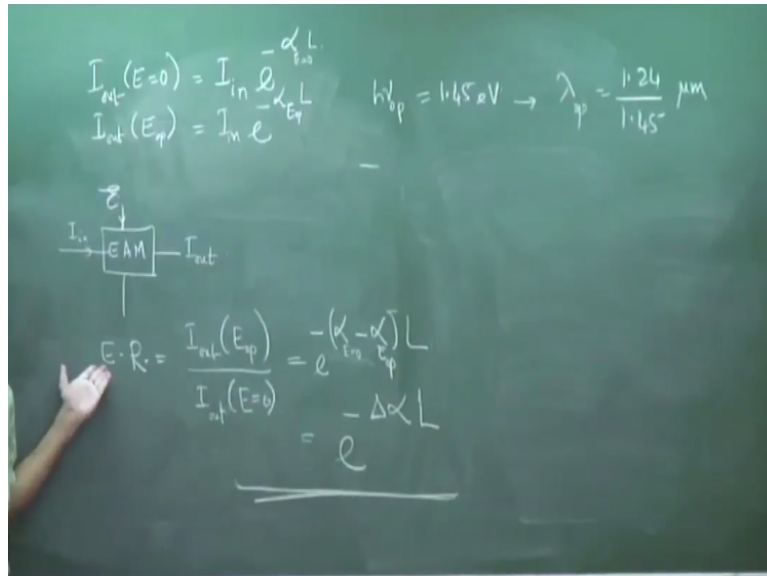 I_out (E=0) = I_in e^{-α_{E=0} L}
I_out (E_op) = I_in e^{-α_{E_op} L}
hν_op = 1.45 eV → λ_op = 1.24/1.45 μm
E
I_in EAM I_out
E.R. = I_out(E_op) / I_out(E=0) = e^{-(α_{E=0} - α_{E_op}) L}
= e^{-Δα L}